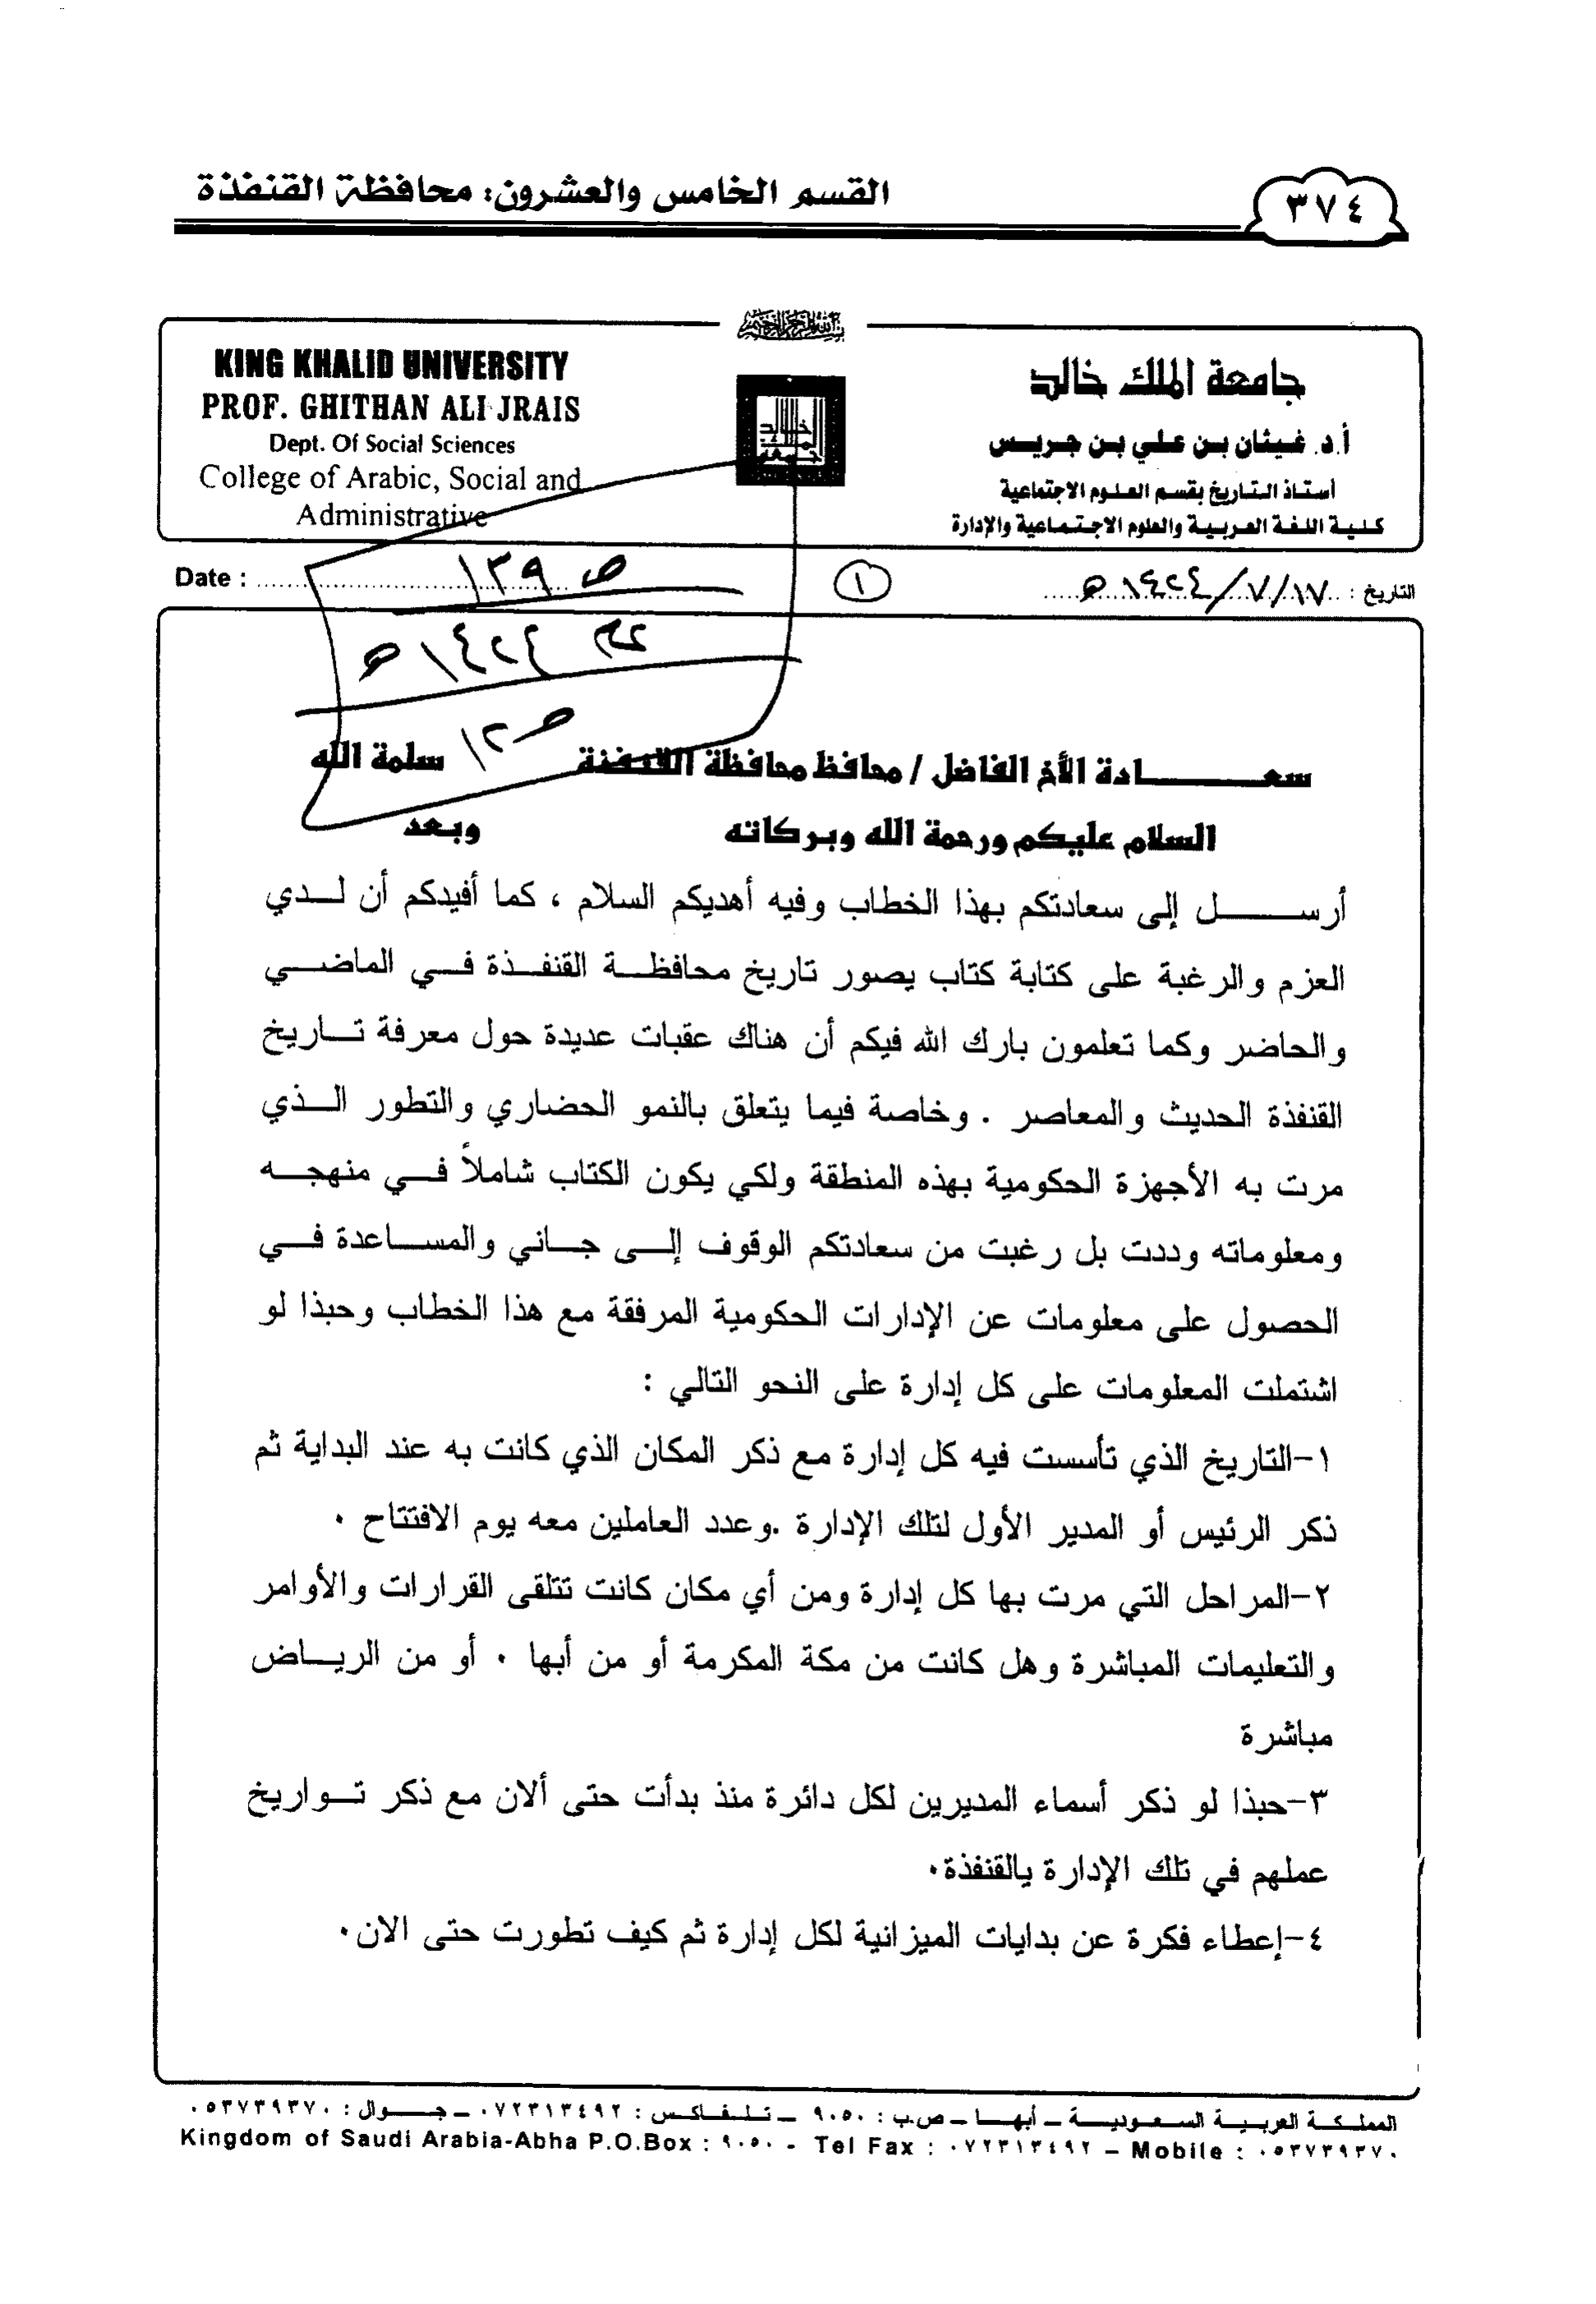 ٣٧٤
القسم الخامس والعشرون: محافظة القنفذة
بسم الله الرحمن الرحيم
جامعة الملك خالد
أ.د. غيثان بن علي بن جريس
أستاذ التاريخ بقسم العلوم الاجتماعية
كلية اللغة العربية والعلوم الاجتماعية والإدارة
KING KHALID UNIVERSITY
PROF. GHITHAN ALI JRAIS
Dept. Of Social Sciences
College of Arabic, Social and
Administrative
التاريخ : ١٤٢٤/٧/١٧هـ
١
Date :
ص ١٣٩
١٤٢٤هـ
ص ١٢
سعـــــــادة الأخ الفاضل / محافظ محافظة القنفذة سلمة الله
السلام عليكم ورحمة الله وبركاته وبعد
أرســـــل إلى سعادتكم بهذا الخطاب وفيه أهديكم السلام ، كما أفيدكم أن لـــدي
العزم والرغبة على كتابة كتاب يصور تاريخ محافظـــة القنفـــذة فـــي الماضـــي
والحاضر وكما تعلمون بارك الله فيكم أن هناك عقبات عديدة حول معرفة تـــاريخ
القنفذة الحديث والمعاصر . وخاصة فيما يتعلق بالنمو الحضاري والتطور الـــذي
مرت به الأجهزة الحكومية بهذه المنطقة ولكي يكون الكتاب شاملاً فـــي منهجـــه
ومعلوماته وددت بل رغبت من سعادتكم الوقوف إلـــى جـــاني والمســـاعدة فـــي
الحصول على معلومات عن الإدارات الحكومية المرفقة مع هذا الخطاب وحبذا لو
اشتملت المعلومات على كل إدارة على النحو التالي :
١-التاريخ الذي تأسست فيه كل إدارة مع ذكر المكان الذي كانت به عند البداية ثم
ذكر الرئيس أو المدير الأول لتلك الإدارة .وعدد العاملين معه يوم الافتتاح ٠
٢-المراحل التي مرت بها كل إدارة ومن أي مكان كانت تتلقى القرارات والأوامر
والتعليمات المباشرة وهل كانت من مكة المكرمة أو من أبها ٠ أو من الريـــاض
مباشرة
٣-حبذا لو ذكر أسماء المديرين لكل دائرة منذ بدأت حتى ألان مع ذكر تـــواريخ
عملهم في تلك الإدارة بالقنفذة٠
٤-إعطاء فكرة عن بدايات الميزانية لكل إدارة ثم كيف تطورت حتى الان٠
المملكـة العربيـة السـعوديـة ـ أبهـا ـ ص.ب : ٩٠٥٠ ـ تـلـفـاكـس : ٠٧٢٣١٣٤٩٢ ـ جـــوال : ٠٥٣٧٣٩٣٧٠
Kingdom of Saudi Arabia-Abha P.O.Box : ٩٠٥٠ - Tel Fax : ٠٧٢٣١٣٤٩٢ – Mobile : ٠٥٣٧٣٩٣٧٠